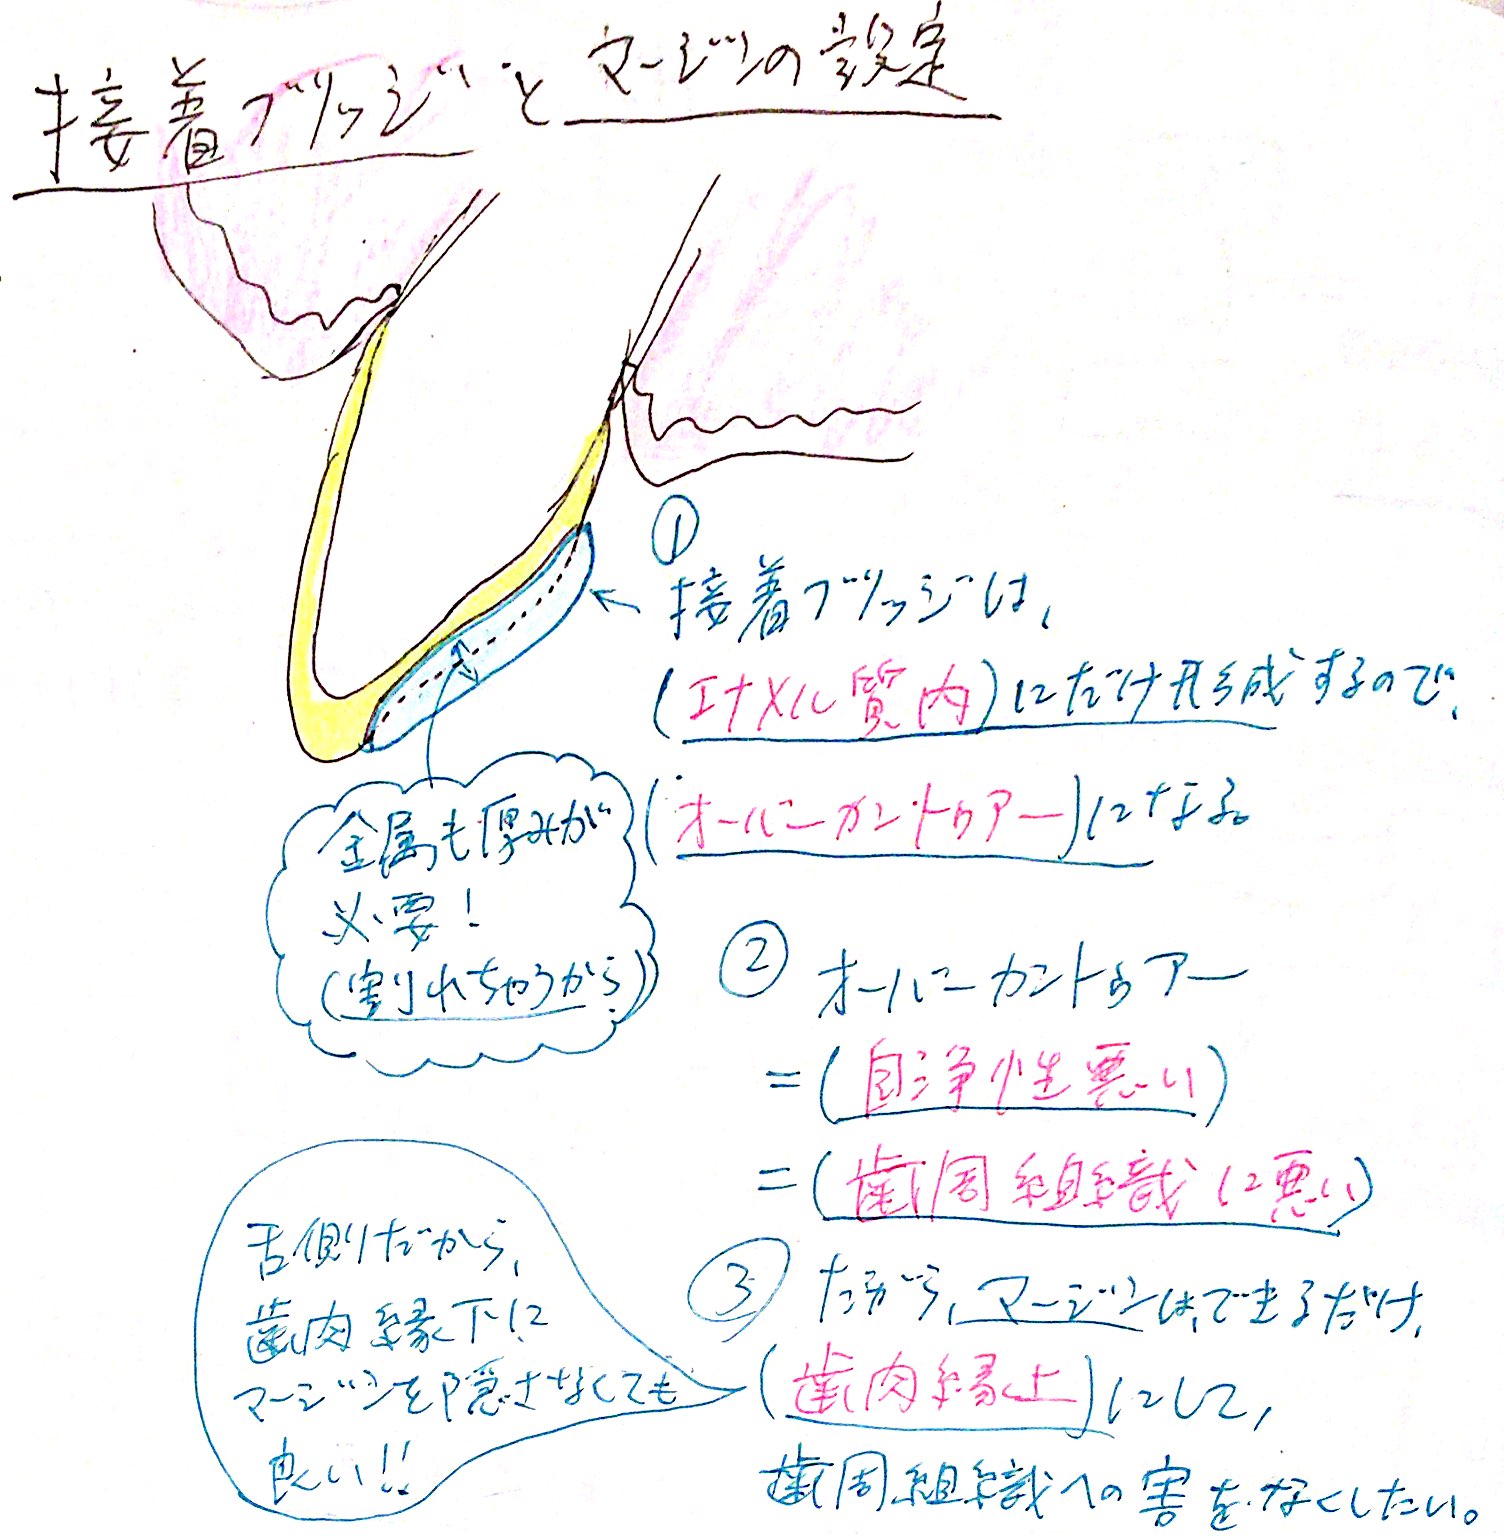 接着ブリッジとマージンの設定
①
接着ブリッジは、
(エナメル質内)にだけ形成するので、
(オーバーカントゥアー)になる。
金属も厚みが
必要!
(割れちゃうから)
② オーバーカントゥアー
=(自浄性悪い)
=(歯周組織に悪い)
③ だから、マージンは、できるだけ、
(歯肉縁上)にして、
歯周組織への害をなくしたい。
舌側だから、
歯肉縁下に
マージンを隠さなくても
良い!!